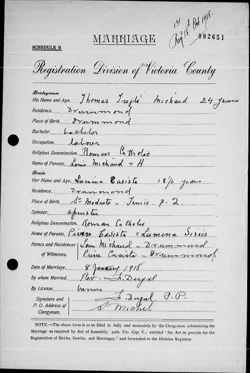 MARRIAGE
002651
SCHEDULE B
Registration Division of Victoria County
Bridegroom
His Name and Age, Thomas Treflé Michaud 24 years
Residence, Drummond
Place of Birth, Drummond
Bachelor bachelor
Occupation, labour
Religious Denomination, Roman Catholic
Name of Parents, Louis Michaud + H
Bride
Her Name and Age, Lumina Casista 18½ years
Residence, Drummond
Place of Birth, St Modeste - Temis. P. Q.
Spinster spinster
Occupation,
Religious Denomination, Roman Catholic
Name of Parents, Pierre Casista & Lumina Sirois
Names and Residence of Witnesses, Louis Michaud - Drummond
Pierre Casista - Drummond
Date of Marriage, 8 January 1918
By Whom Married, Rev. Dugal
By License or Banns, banns
Signature and P. O. Address of Clergyman, Dugal P.P.
St Michel
NOTE.—The above form is to be filled in fully and accurately by the Clergyman solemnizing the Marriage as required by Act of Assembly
Registration of Births, Deaths, and Marriages," and forwarded to the Division Registrar.